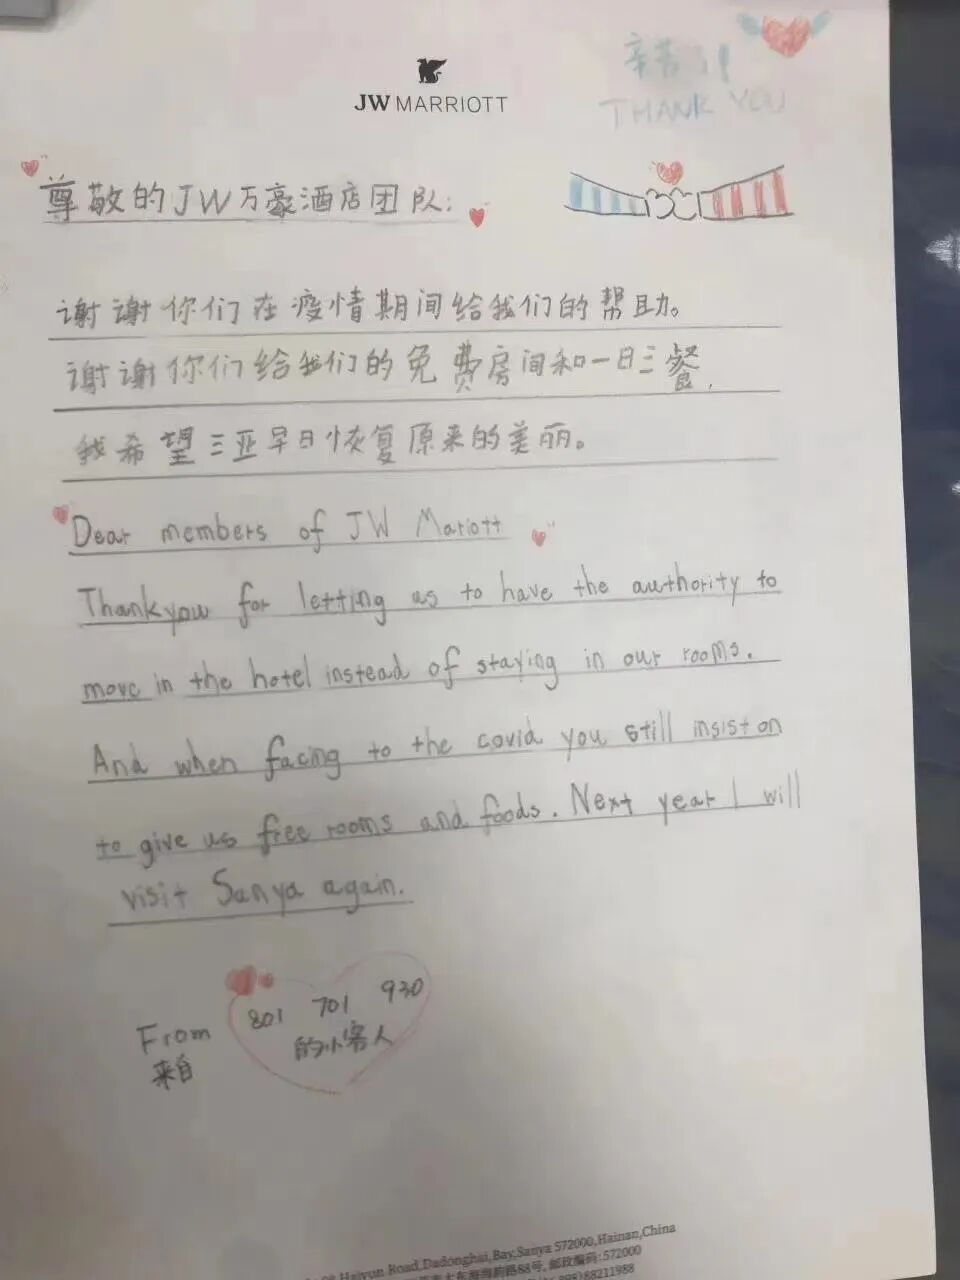 辛苦了！
THANK YOU
JW MARRIOTT
尊敬的JW万豪酒店团队：
谢谢你们在疫情期间给我们的帮助。
谢谢你们给我们的免费房间和一日三餐，
我希望三亚早日恢复原来的美丽。
Dear members of JW Mariott
Thankyou for letting as to have the authority to
move in the hotel instead of staying in our rooms.
And when facing to the covid you still insist on
to give us free rooms and foods. Next year I will
visit Sanya again.
From 801 701 930
来自 的小客人
Haiyun Road,Dadonghai,Bay,Sanya 572000,Hainan,China
88号, 邮政编码:572000
88211988